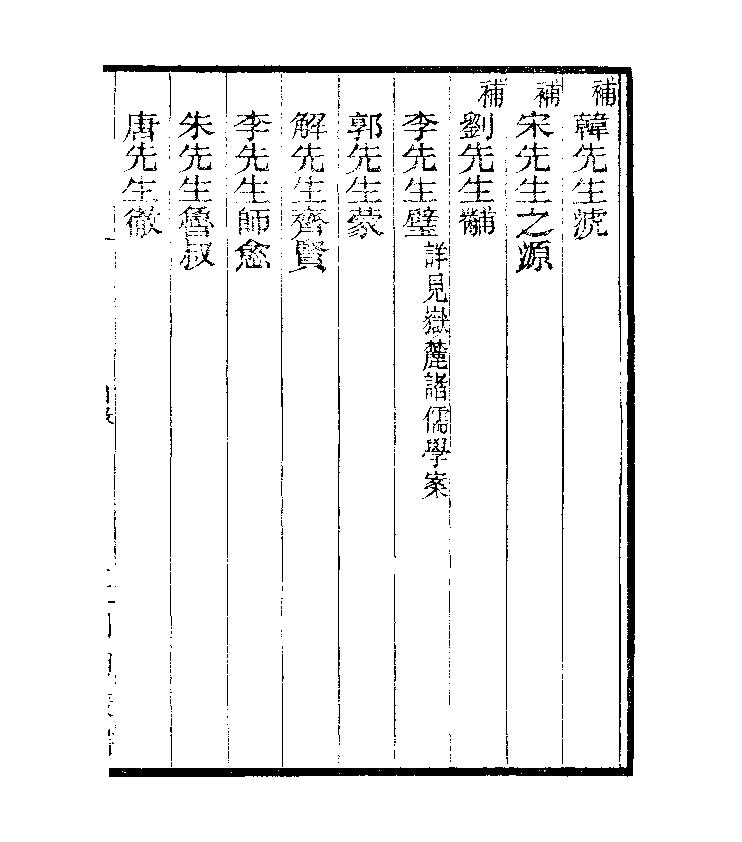 補韓先生淲
補宋先生之源
補劉先生黼
李先生壁詳見嶽麓諸儒學案
郭先生蒙
解先生齊賢
李先生師愈
朱先生魯叔
唐先生徹